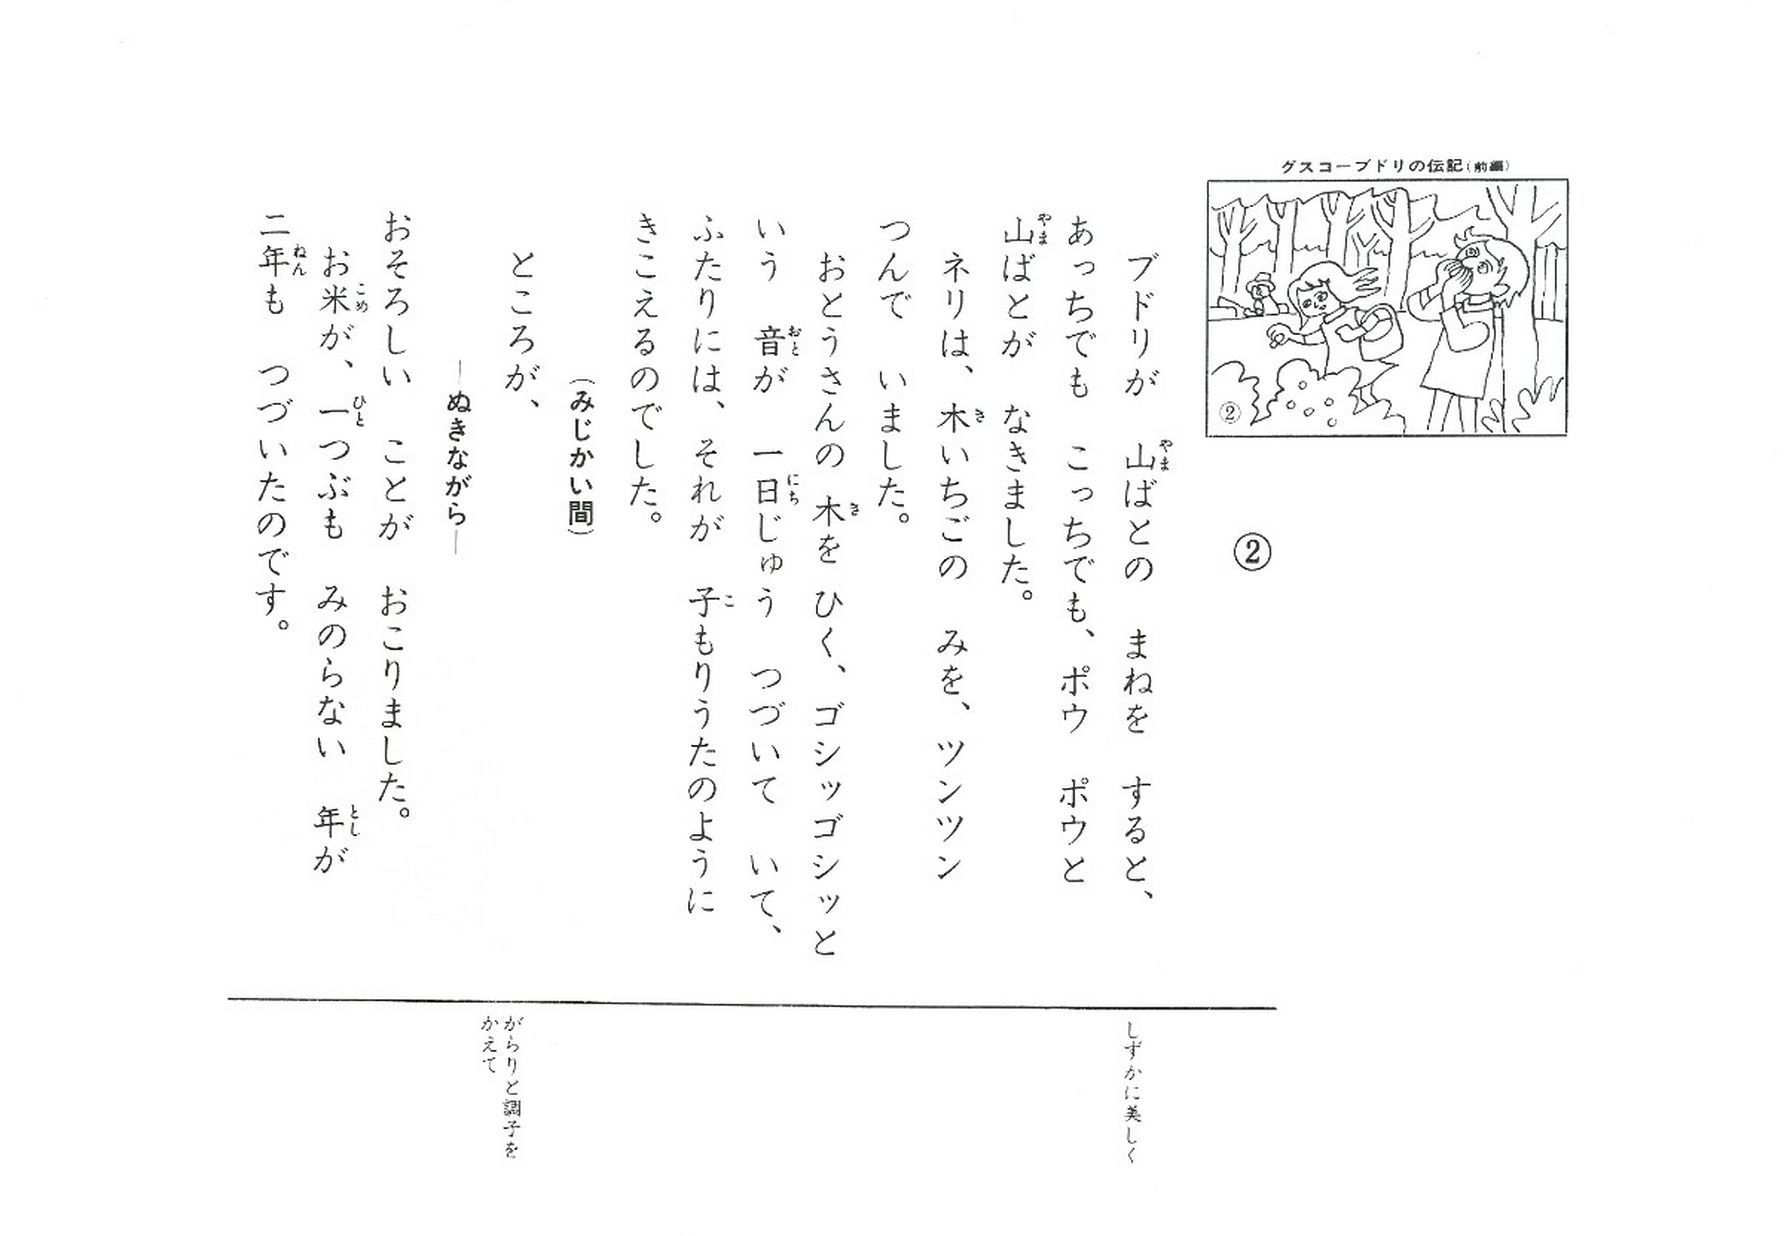 グスコーブドリの伝記(前編)
②
②
ブドリが　山ばとの　まねを　すると、
あっちでも　こっちでも、ポウ　ポウと
山ばとが　なきました。
ネリは、木いちごの　みを、ツンツン
つんで　いました。
おとうさんの　木を　ひく、ゴシッゴシッと
いう　音が　一日じゅう　つづいて　いて、
ふたりには、それが　子もりうたのように
きこえるのでした。
(みじかい間)
ところが、
―ぬきながら―
おそろしい　ことが　おこりました。
お米が、一つぶも　みのらない　年が
二年も　つづいたのです。
しずかに美しく
がらりと調子を
かえて